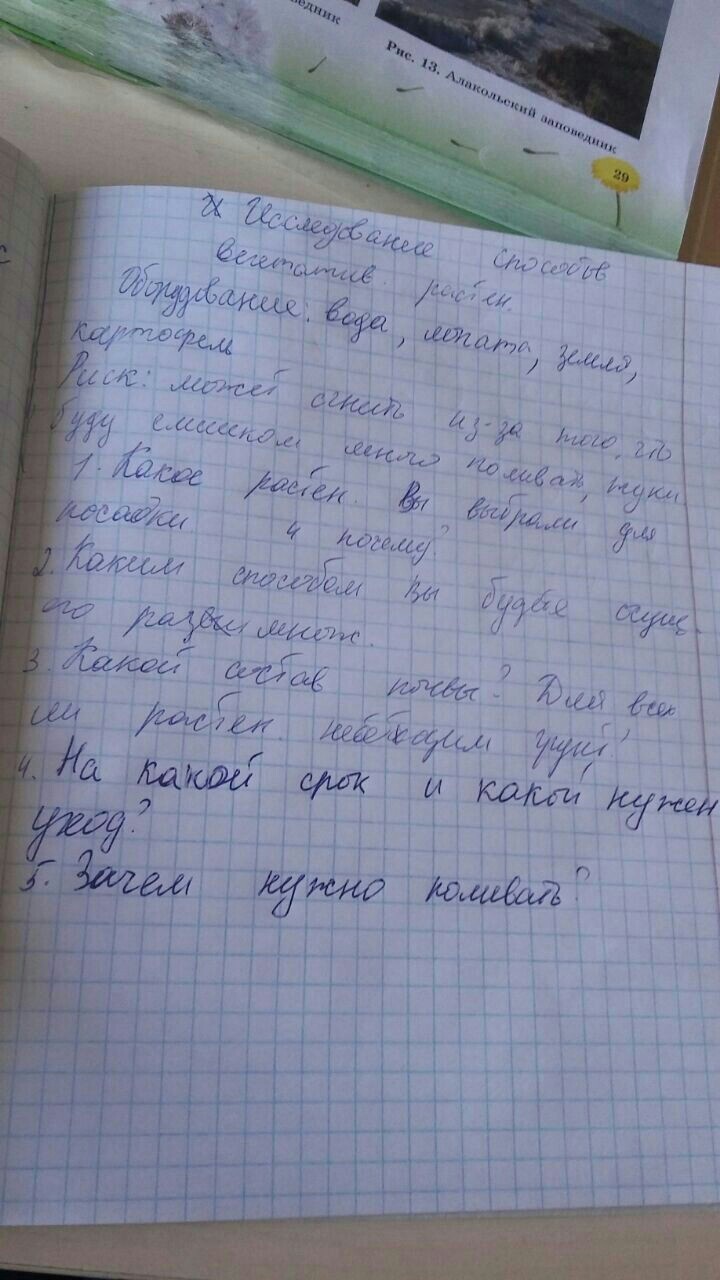 ведник
Рис. 13. Алакольский заповедник
29
с
Исследование способов
вегетатив. растен.
Оборудование: вода, лопата, земля,
картофель
Риск: может сгнить из-за того, что
буду слишком много поливать, жуки
1. Какое растен. Вы выбрали для
посадки и почему?
2. Каким способом вы будете осущ.
его размнож.
3. Какой состав почвы? Для всех
ли растен. необходим грунт?
4. На какой срок и какой нужен
уход?
5. Зачем нужно поливать?